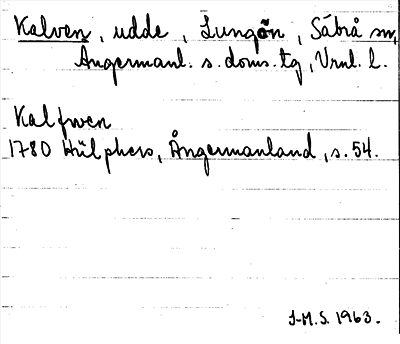 Kalven, udde, Lungön, Säbrå sn,
Ångermanl. s. doms. tg, Vrnl. l.
Kalfwen
1780 Hülphers, Ångermanland, s. 54.
J-M.S. 1963.